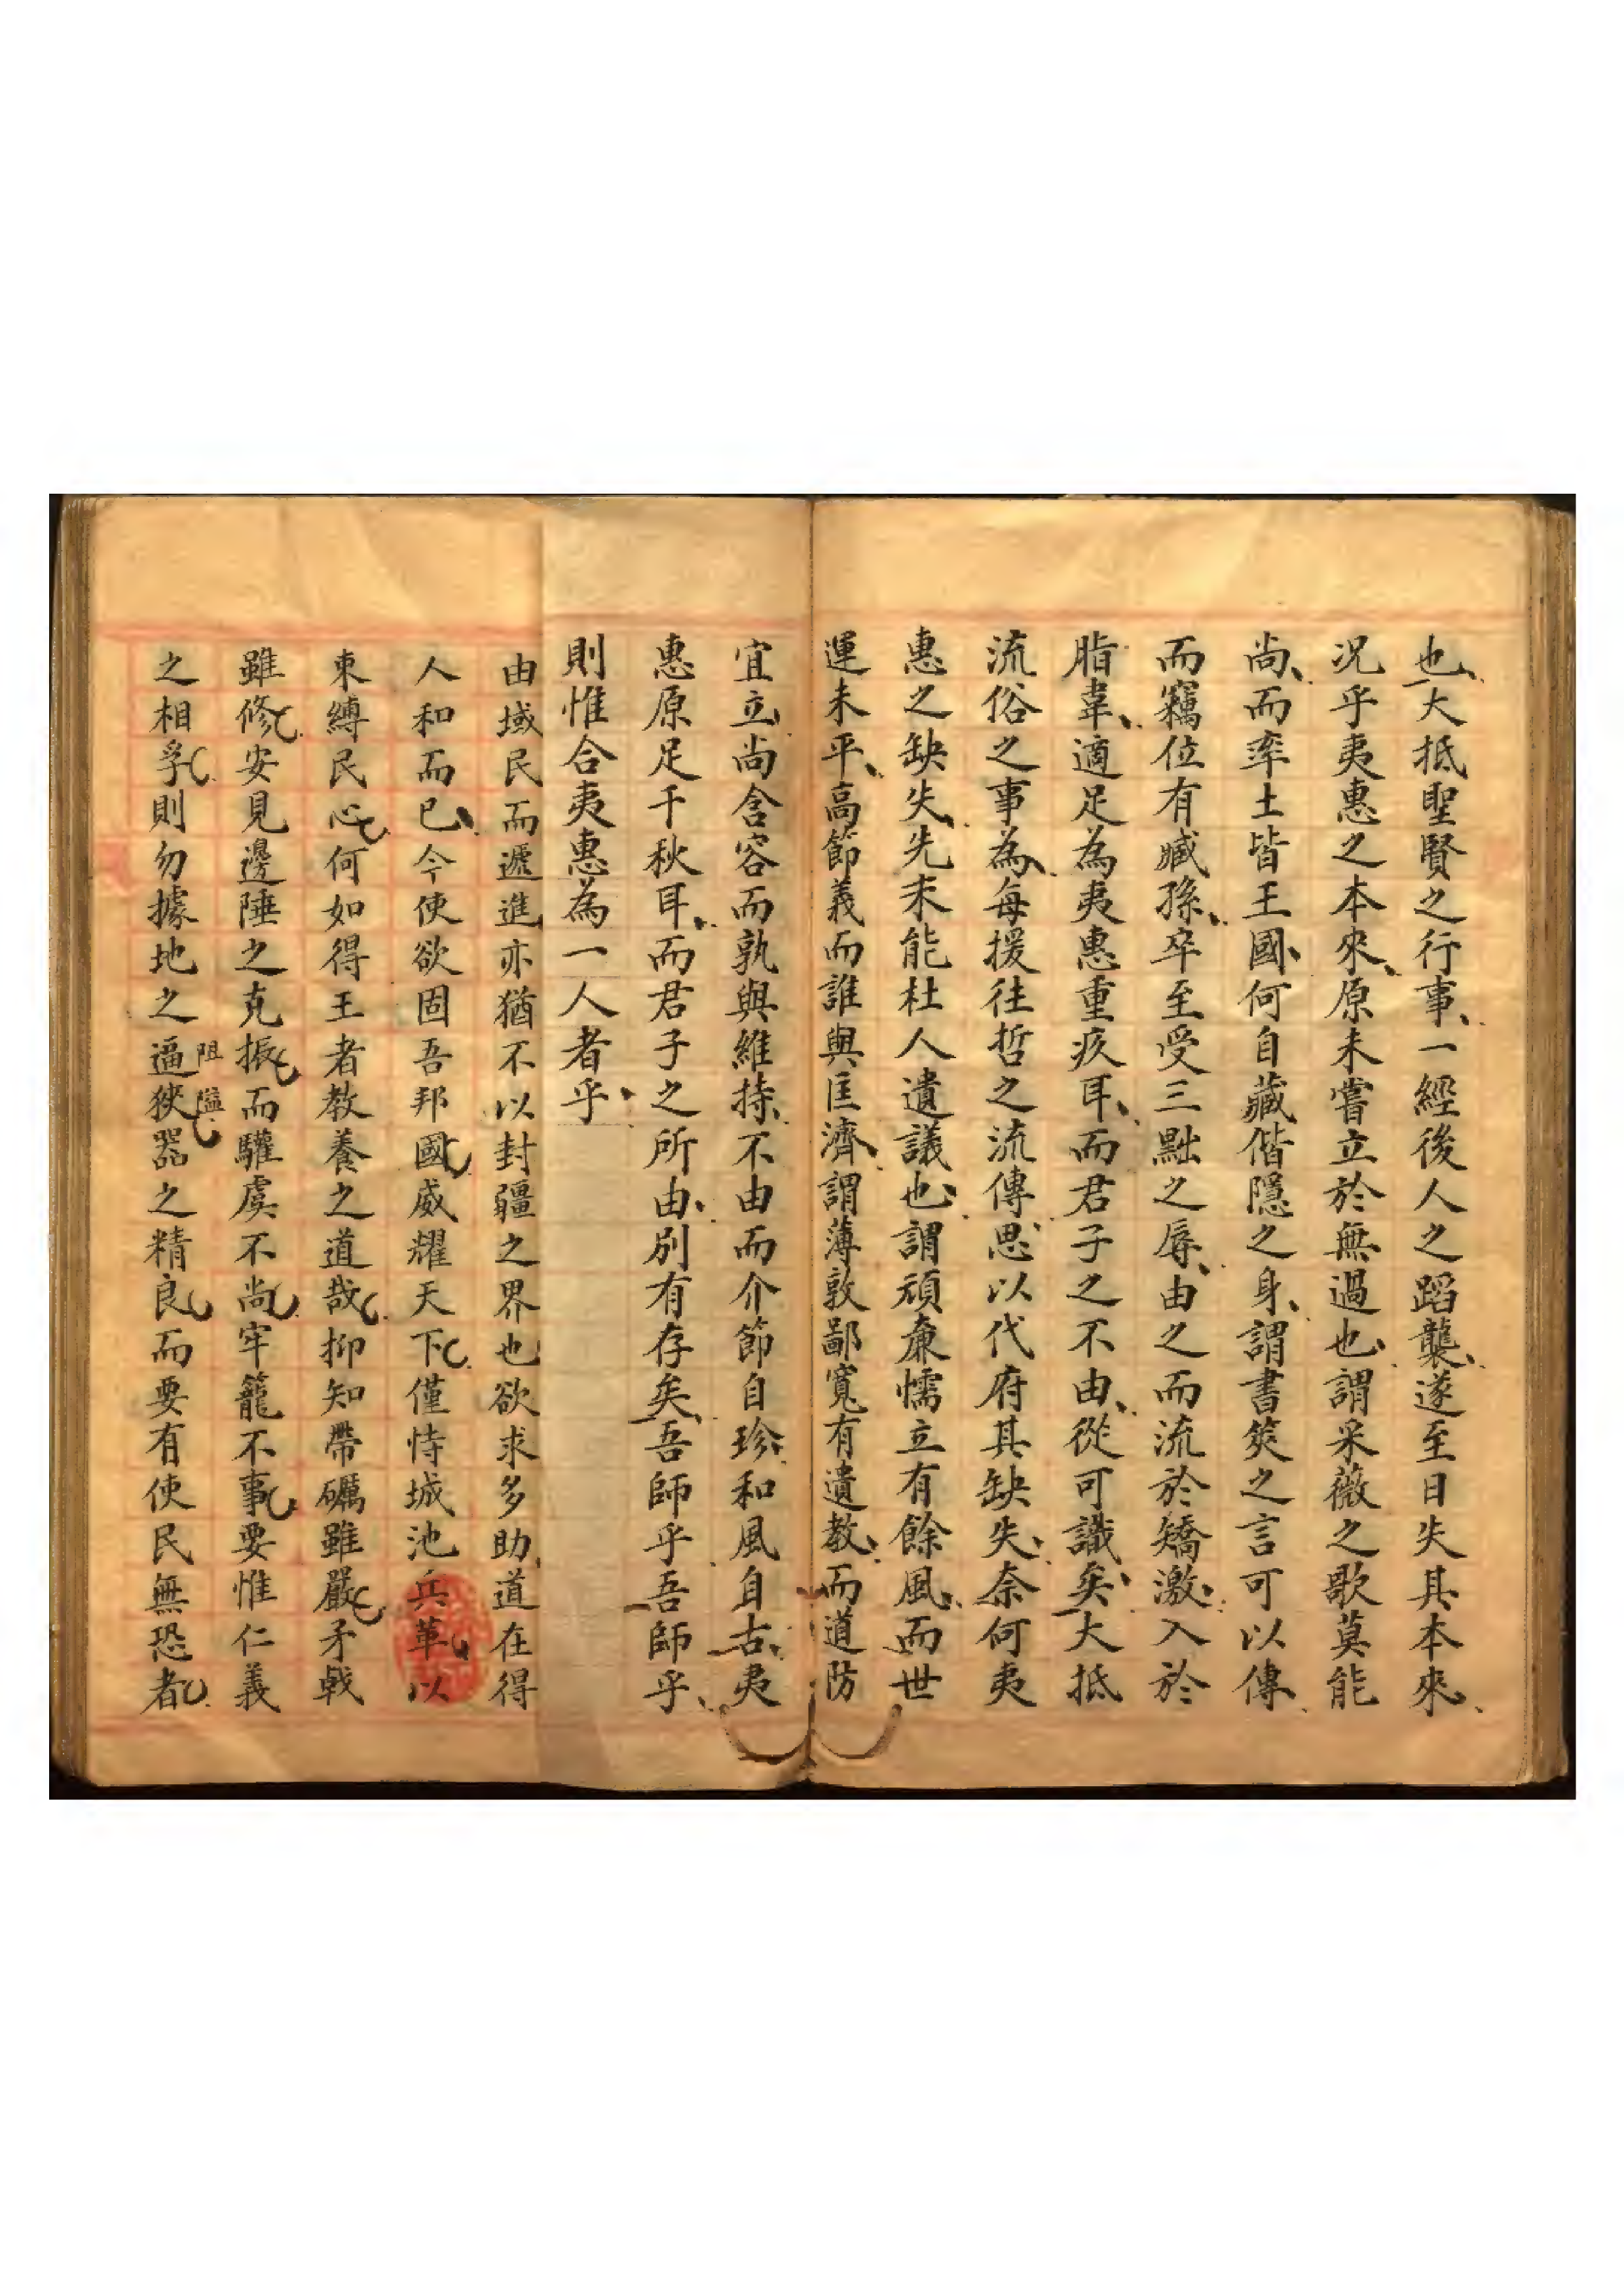 也大抵聖賢之行事一經後人之蹈襲遂至日失其本來
况乎夷惠之本來原未嘗立於無過也謂采薇之歌莫能
尚而率土皆王國何自藏偕隱之身謂書筴之言可以傳
而竊位有臧孫卒至受三黜之辱由之而流於矯激入於
脂韋適足為夷惠重疚耳而君子之不由從可識矣大抵
流俗之事為每援往哲之流傳思以代府其缺失奈何夷
惠之缺失先未能杜人遺議也謂頑廉懦立有餘風而世
運未平高節義而誰與匡濟謂薄敦鄙寬有遺教而道防
宜立尚含容而孰與維持不由而介節自珍和風自古夷
惠原足千秋耳而君子之所由別有存矣吾師乎吾師乎
則惟合夷惠為一人者乎
由域民而遞進亦猶不以封疆之界也欲求多助道在得
人和而已今使欲固吾邦國威耀天下僅恃城池兵革以
束縛民心何如得王者教養之道哉抑知帶礪雖嚴矛戟
雖修安見邊陲之克振而驩虞不尚牢籠不事要惟仁義
之相孚則勿據地之逼狹器之精良而要有使民無恐者
阻隘